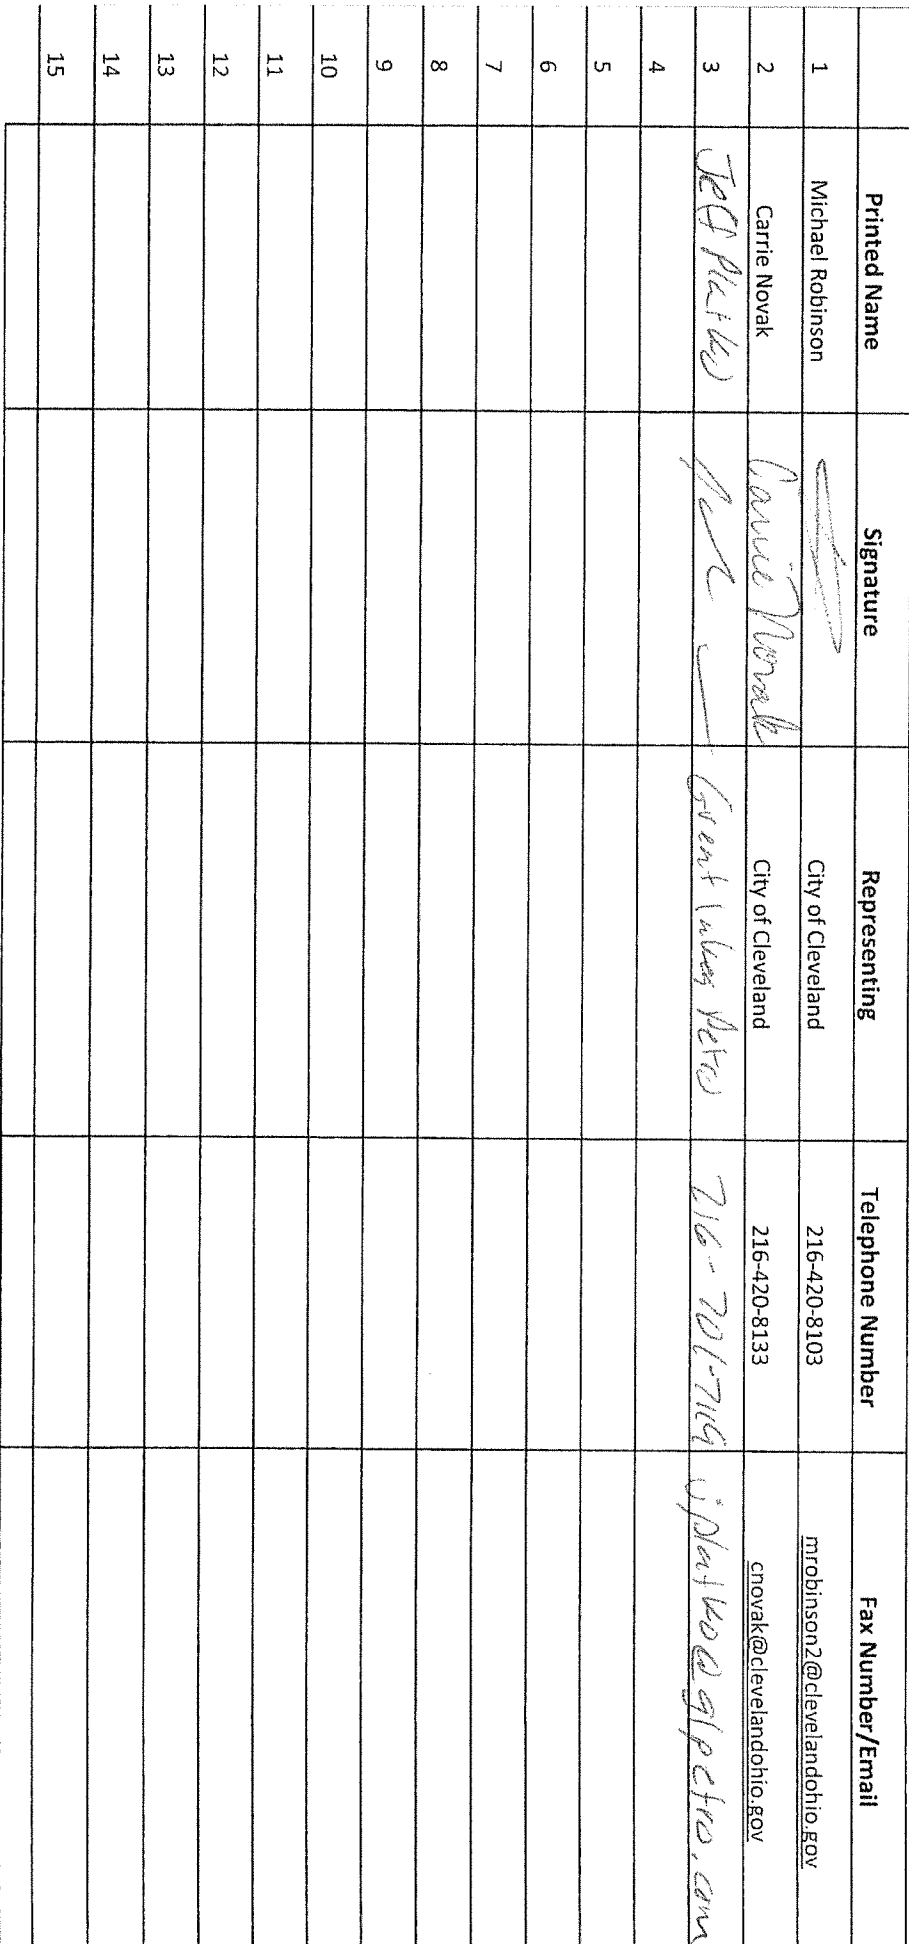 Printed Name Signature Representing Telephone Number Fax Number/Email
1 Michael Robinson City of Cleveland 216-420-8103 mrobinson2@clevelandohio.gov
2 Carrie Novak Carrie Novak City of Cleveland 216-420-8133 cnovak@clevelandohio.gov
3 Jeff Platko Great Lakes Petro 216-701-7119 jplatko@glpetro.com
4
5
6
7
8
9
10
11
12
13
14
15